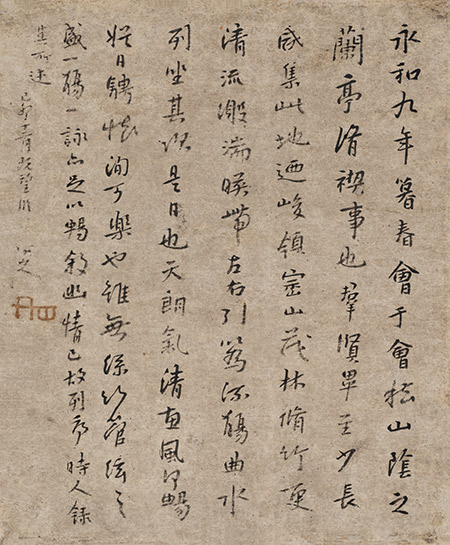 永和九年暮春會于會稽山陰之
蘭亭脩禊事也羣賢畢至少長
咸集此地迺峻領崇山茂林脩竹更
清流激湍暎帶左右引為流觴曲水
列坐其次是日也天朗氣清惠風和暢
娛目騁懷洵可樂也雖無絲竹管絃之
盛一觴一詠亦足以暢敘幽情已故列序時人錄
其所述 既望 八大山人